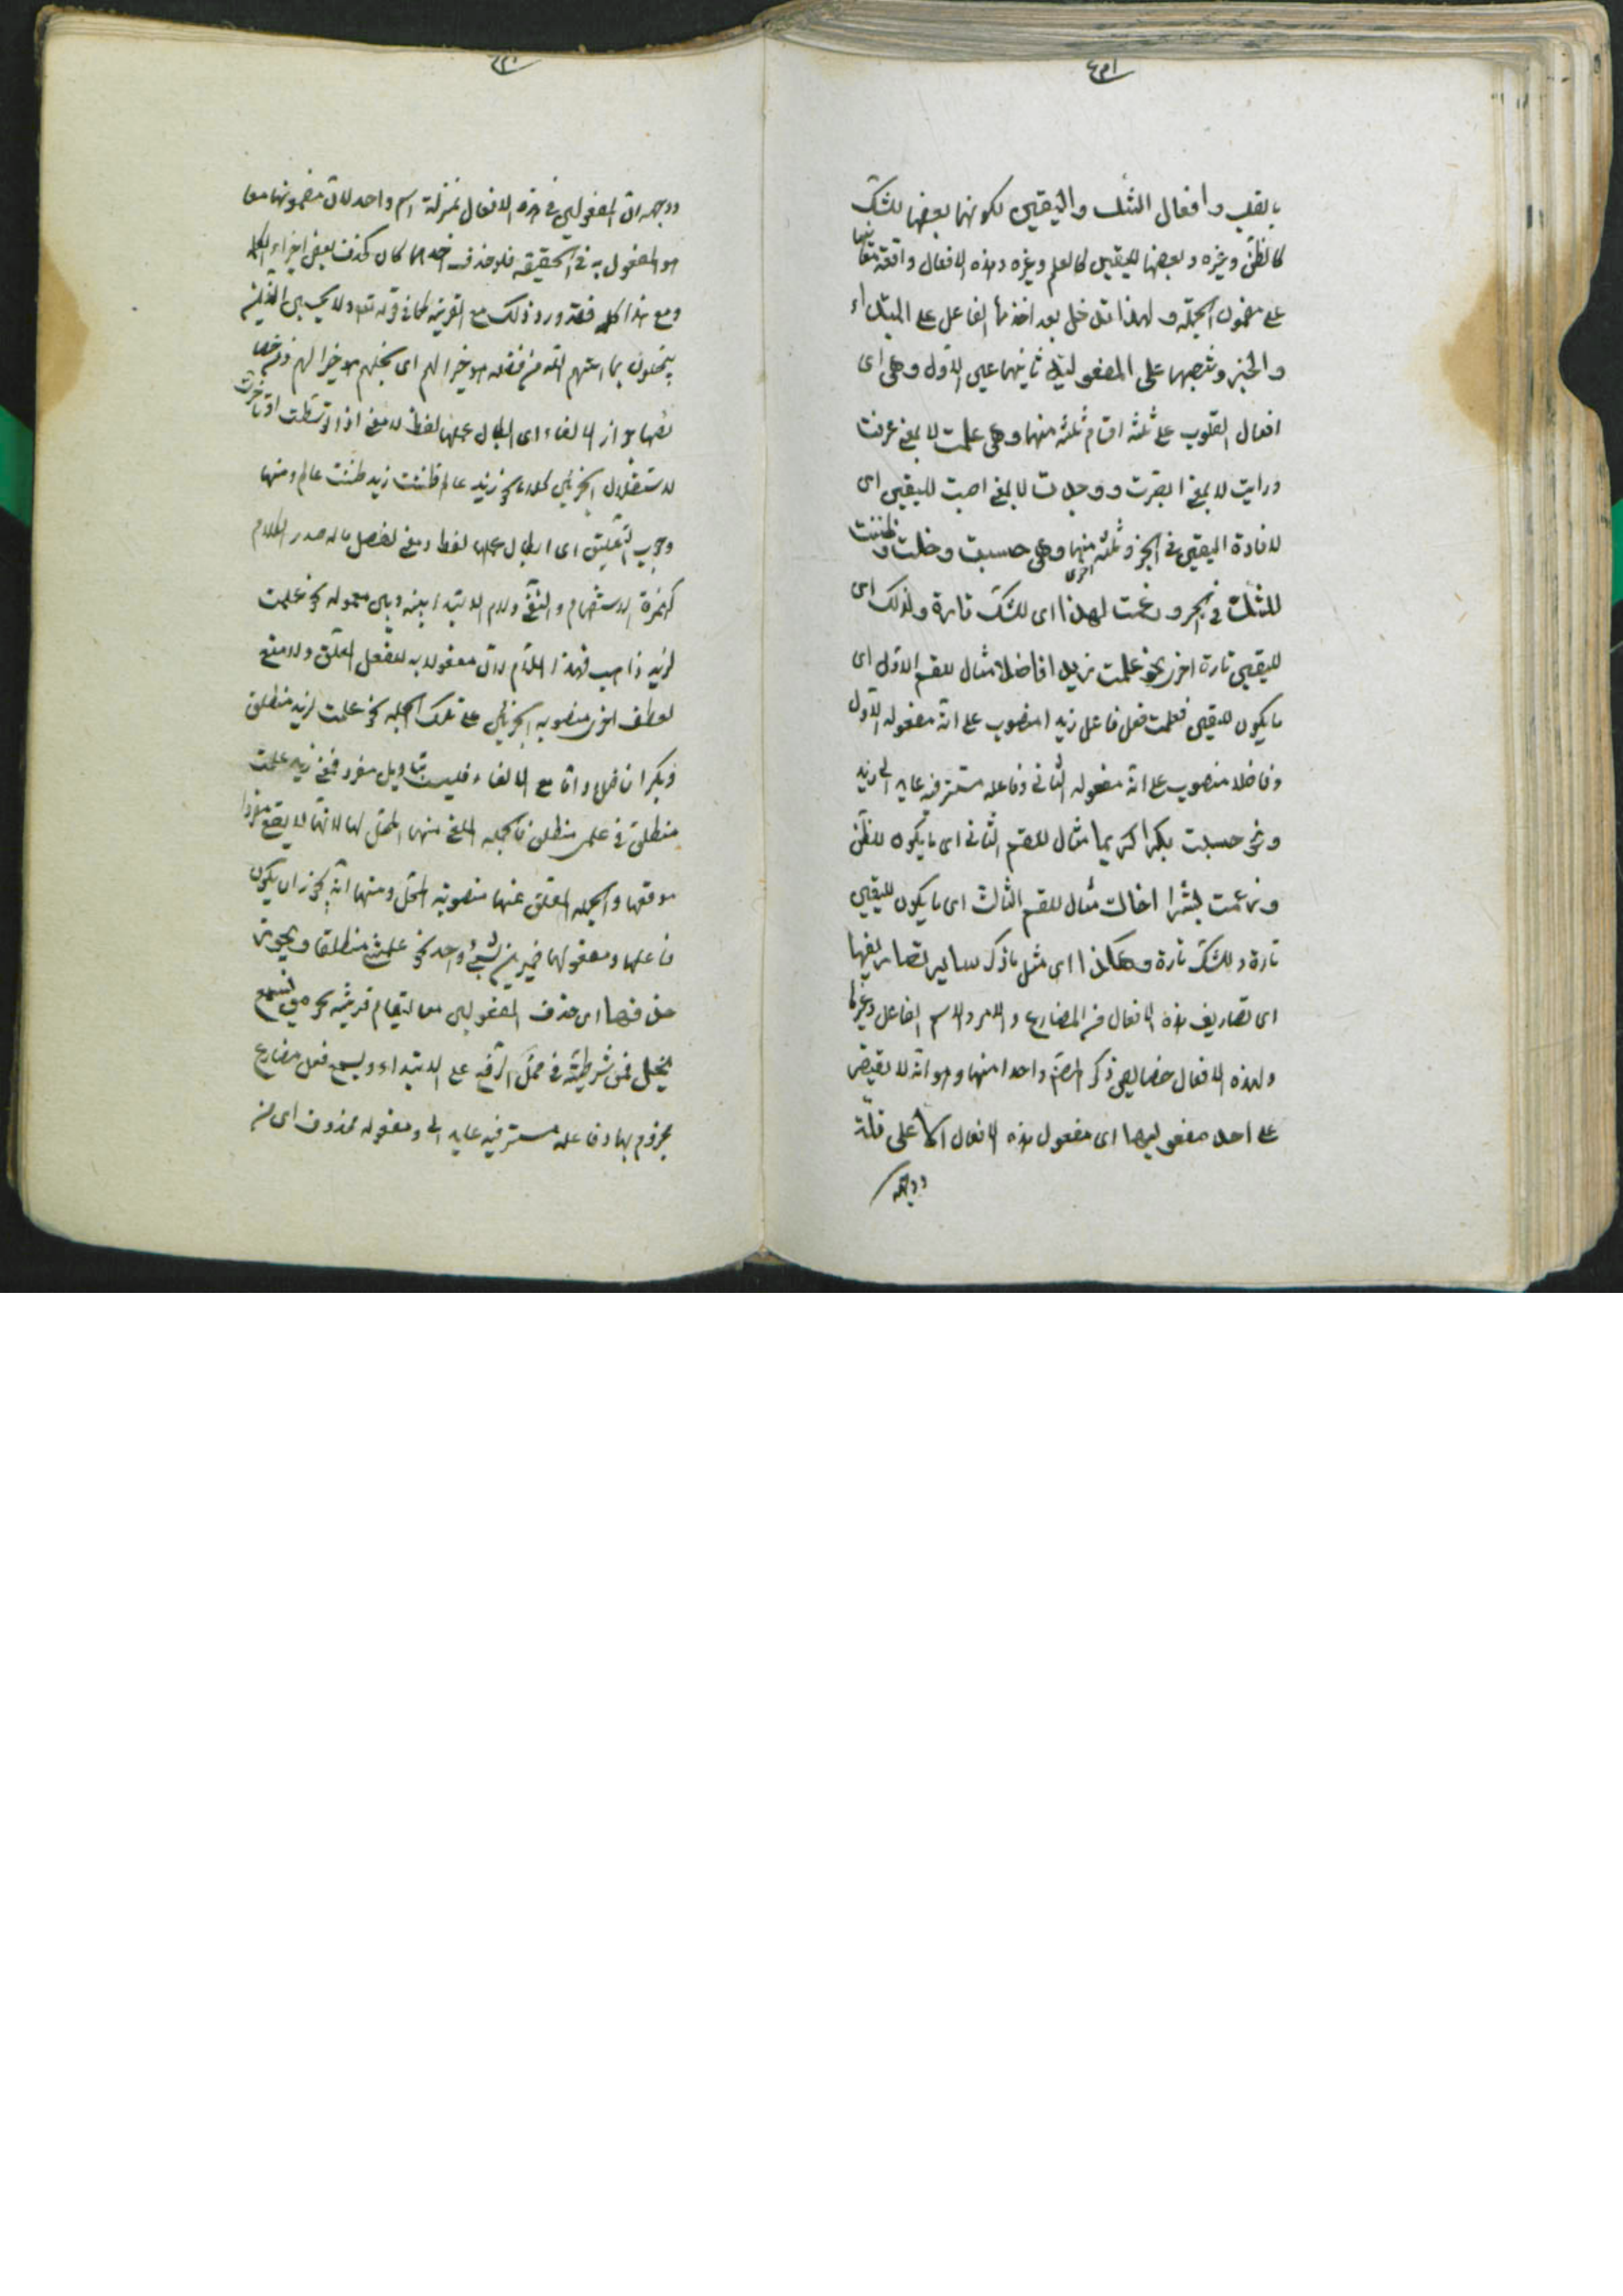 بالقلب وافعال الشك واليقين لكونها بعضها للشك
كالظن وغيره وبعضها لليقين كالعلم وغيره وهذه الافعال واقعة معانيها
على مضمون الجملة ولهذا تدخل بعد اخذها الفاعل على المبتداء
والخبر وتنصبهما على المفعوليته ثانيهما عين الاول وهى اى
افعال القلوب على ثلثه اقسام ثلثه منها وهى علمت لا بمعنى عرفت
ورايت لا بمعنى ابصرت ووجدت لا بمعنى اصبت لليقين اى
لافادة اليقين فى الخبر وثلثه اخرى منها وهى حسبت وخلت وظننت
للشك فى الخبر وزعمت لهذا اى للشك تارة ولذلك اى
لليقين تارة اخرى نحو علمت زيدا فاضلا مثال للقسم الاول اى
ما يكون لليقين فعلمت فعل فاعل زيدا منصوب على انه مفعوله الاول
وفاضلا منصوب على انه مفعوله الثانى وفاعله مستتر فيه عايد الى زيد
ونحو حسبت بكرا كريما مثال للقسم الثانى اى ما يكون للظن
وزعمت بشرا اخاك مثال للقسم الثالث اى ما يكون لليقين
تارة وللشك تارة وهكذا اى مثل ما ذكر ساير تصاريفها
اى تصاريف هذه الافعال من المضارع والامر والاسم الفاعل وغيرها
ولهذه الافعال خصايص ذكر المصنف واحدا منها وهو انه لا يقتصر
على احد مفعوليها اى مفعول هذه الافعال الا على قلة
ووجهه
ووجهه ان المفعولين فى هذه الافعال بمنزلة اسم واحد لان مضمونهما معا
هو المفعول به فى الحقيقة فلو حذف احدهما كان كحذف بعض اجزاء الكلمة
ومع هذا كله فقد ورد ذلك مع القرينة كما فى قوله تعم ولا يحسبن الذين
يبخلون بما اتيهم الله من فضله هو خيرا لهم اى بخلهم هو خيرا لهم ومن خصا
ئصها جواز الالغاء اى ابطال عملها لفظا ومعنى اذا توسطت او تاخرت
لاستقلال الجزئين كلاما نحو زيد عالم ظننت زيد ظننت عالم ومنها
وجوب التعليق اى ابطال عملها لفظا دون معنى لفصل ما له صدر الكلام
كهمزة الاستفهام والنفى ولام الابتداء بينه وبين معموله نحو علمت
لزيد ذاهب فهذا اللام لان مفعول به للفعل المعلق ولا يمتنع
لعطف اخرى منصوبه الجزئين على تلك الجملة نحو علمت لزيد منطلق
وبكرا فاضلا واما مع الالغاء فليست بتاويل مفرد فمعنى زيد علمت
منطلق زيد فى علمى منطلق فالجملة الملغى منها لا محل لها لانها لا يقع مفردا
موقعها والجملة المعلق عنها منصوبة المحل ومنها انه يجوز ان يكون
فاعلها ومفعولها ضميرين لشىء واحد نحو علمتنى منطلقا ويجوز
حذفهما اى حذف المفعولين معا لقيام قرينة نحو من يسمع
يخل فمن شرطية فى محل الرفع على الابتداء ويسمع فعل مضارع
مجزوم بها وفاعله مستتر فيه عايد الى ومفعوله محذوف اى من